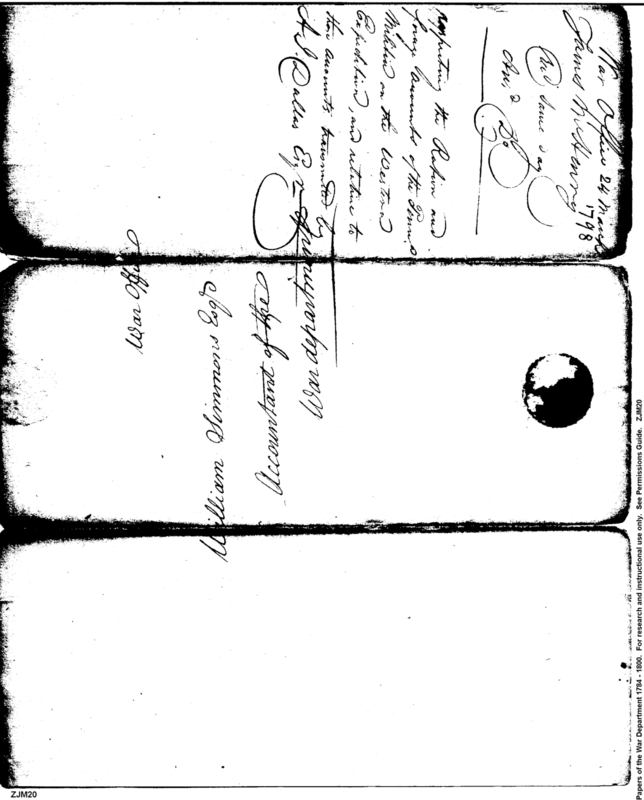 War Office 24 March
1798
James McHenry
Recd same day
Respecting the Ration and
forage Accounts of the Penns.
Militia on the Western
Expedition, and relative to
the accounts transmitted by
A. J. Dallas Esqr
War Office
William Simmons Esqr
Accountant of the
War department
Papers of the War Department 1784 - 1800. For research and instructional use only. See Permissions Guide. ZJM20
ZJM20